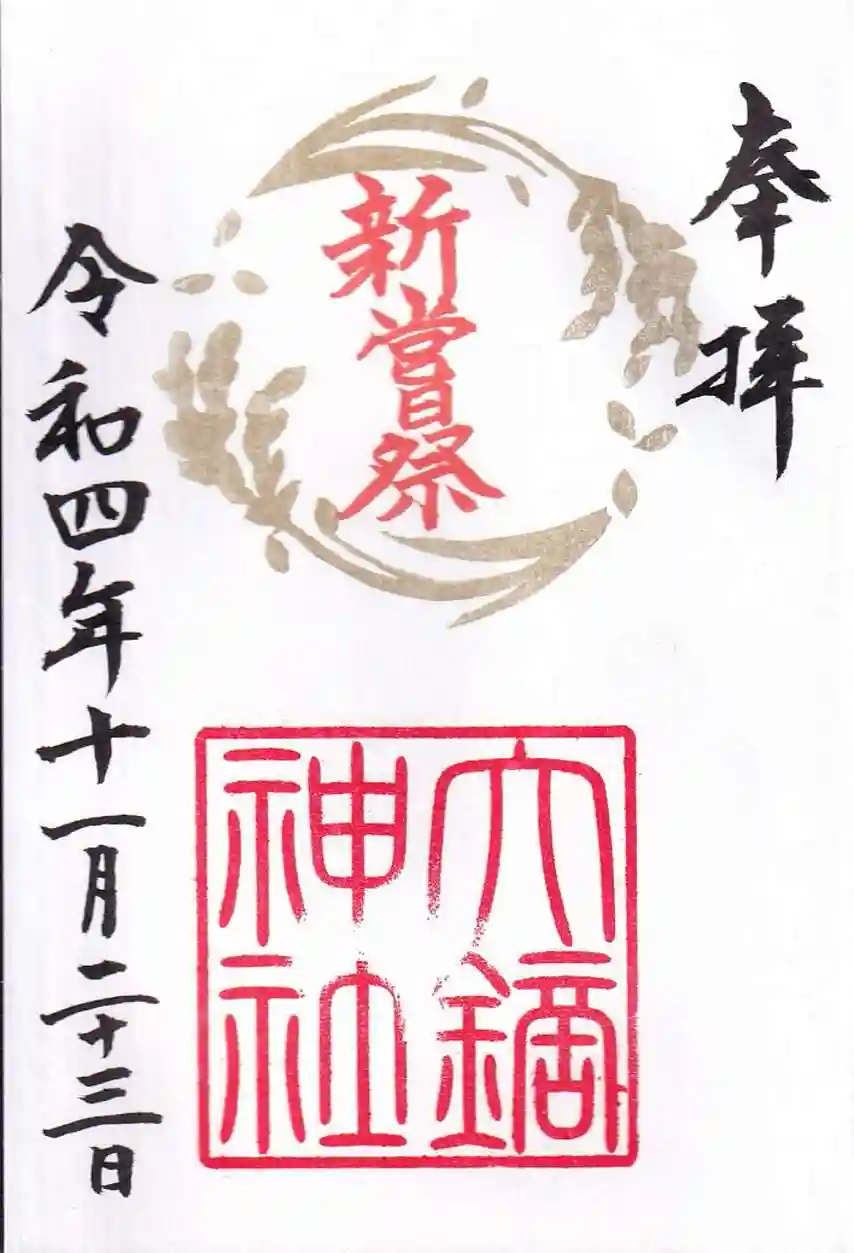 奉拝
新嘗祭
大鏑
神社
令和四年十一月二十三日